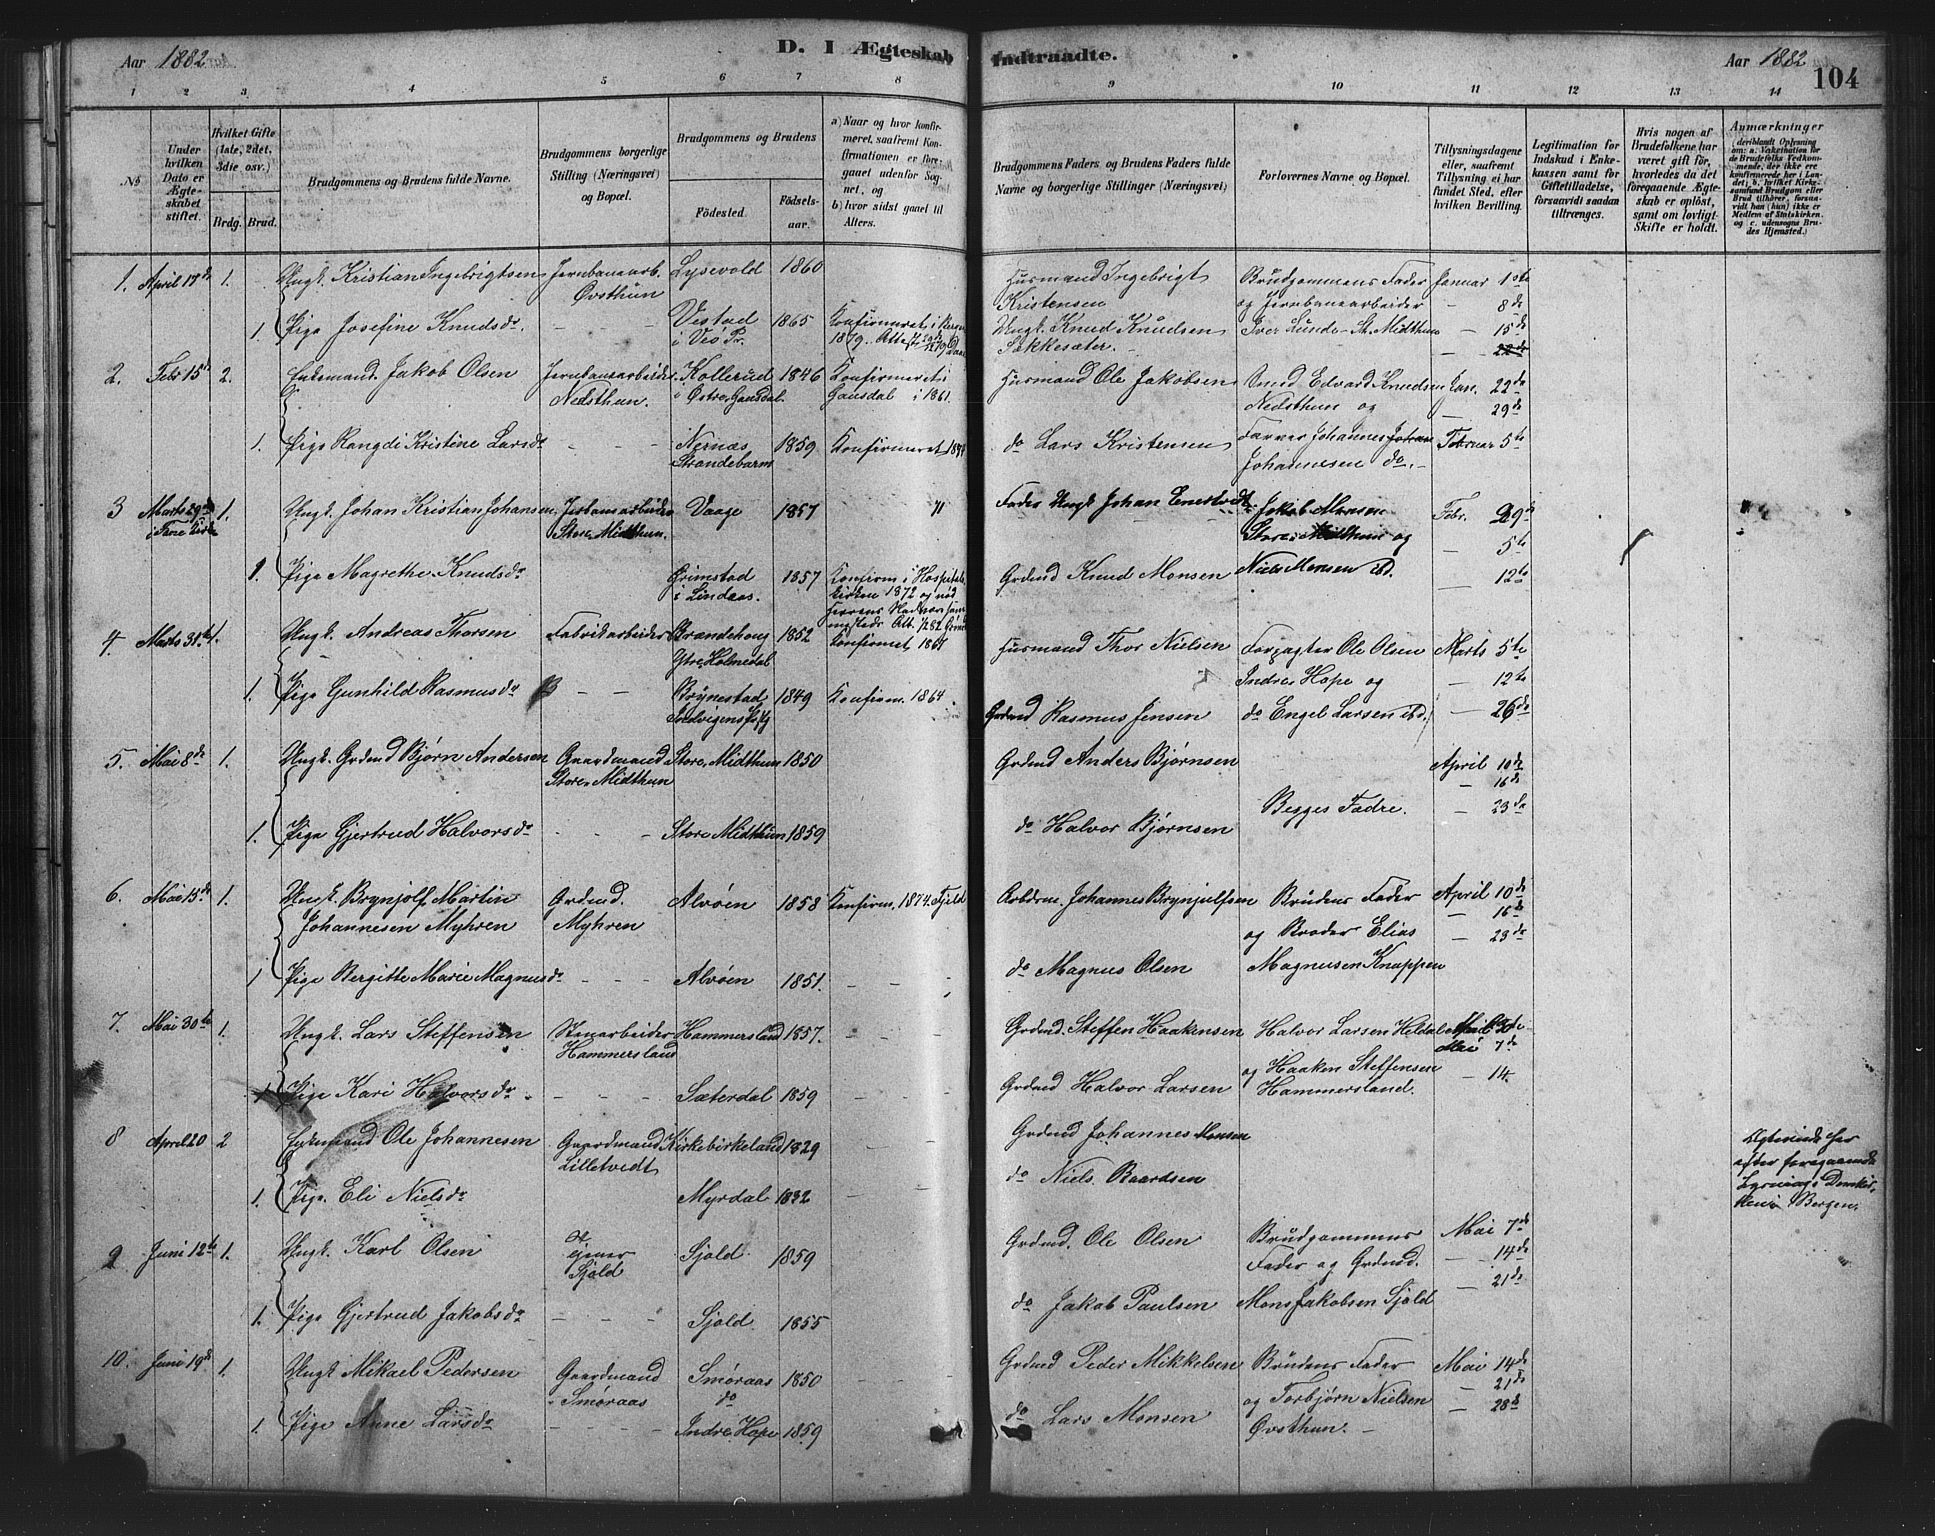 Aar 1882
D. I Ægteskab Indtraadte.
Aar 1882
104
1 2 3 4 5 6 7 8 9 10 11 12 13 14
No
Under hvilken Dato er Ægteskabet stiftet.
Hvilket Gifte (1ste, 2det, 3die osv.)
Brdg. Brud.
Brudgommens og Brudens fulde Navne.
Brudgommens borgerlige Stilling (Næringsvei) og Bopæl.
Brudgommens og Brudens
Födested.
Födsels-aar.
a) Naar og hvor konfirmeret, saafremt Konfirmationen er foregaaet udenfor Sognet, og
b) hvor sidst gaaet til Alters.
Brudgommens Faders og Brudens Faders fulde Navne og borgerlige Stillinger (Næringsvei)
Forlovernes Navne og Bopæl.
Tillysningsdagene eller, saafremt Tillysning ei har fundet Sted, efter hvilken Bevilling.
Legitimation for Indskud i Enkekassen samt for Giftetilladelse, forsaavidt saadan tiltrænges.
Hvis nogen af Brudefolkene har været gift för, hvorledes da det foregaaende Ægteskab er oplöst, samt om lovligt Skifte er holdt.
Anmærkninger
1. April 17de 1. Ungk. Kristian Ingebrigtsen Jernbanearb. Lysevold 1860 Husmand Ingebrigt Brudgommens Fader Januar 1ste
Øvsthun Kristensen og Jernbanearbeider — 8de
1. Pige Josefine Knudsdr. — — Vestad 1865 Konfirmeret i Bergen Ungk. Knud Knudsen Iver Lunde St. Midthun — 15de
i Veø Pr. 1879. Sækkesæter. — 22de
2. Febr 15de 2. Enkemand Jakob Olsen Jernbanearbeider Kollerud 1846 Konfirmeret i Husmand Ole Jakobsen Smed Edvard Knudsen Jan. 22de
Nedsthun. i Østre Gausdal. Gausdal i 1861. Nedsthun og — 29de
1. Pige Rangdi Kristine Larsdr — — Nernæs 1859 Konfirmeret do Lars Kristensen Farver Johannes Februar 5te
Strandebarm Johannesen do. —
3 Marts 29de 1. Ungk. Johan Kristian Johansen Jernbanearbeider Vaage 1857 Fader Ungk Johan Jakob Monsen Febr. 29de
i Fane Kirke Store Midthun. Store Midthun og — 5te
1. Pige Magrethe Knudsdr Grimstad 1857 Konfirm. i Hospitals Grdmd Knud Monsen Niels Monsen ibd. — 12te
i Lindaas. kirken 1872 og
4. Marts 31te 1. Ungk. Andreas Thorsen Fabrikarbeider Strandehoug 1852 Konfirmet 1867 Husmand Thor Nielsen Forpagter Ole Olsen Marts 5te
Ytre Holmedal Indre Hope og — 12te
1. Pige Gunhild Rasmusdr — — Brynestad 1849 Konfirm. 1864. Grdmd Rasmus Jensen do Engel Larsen ibd. — 26de
5. Mai 8de 1. Ungk. Grdmd Bjørn Andersen Gaardmand Store Midthun 1850 Grdmd Anders Bjørnsen April 10de
Store Midthun — 16de
Begges Fædre. — 23de
1. Pige Gjertrud Halvorsdr — — — Store Midthun 1859 do Halvor Bjørnsen
6. Mai 15de 1. Ungk. Brynjolf Martin Grdmd. Alvøen 1858 Konfirm. 1874. Fjeld Arbdrm. Johannes Brynjulfsen Brudens Fader April 10de
Johannesen Myhren Myhren og Broder Elias — 16de
— 23de
1 Pige Bergitte Marie Magnusdr — — — Alvøen 1851. — — — do Magnus Olsen Magnusen Knappen
7. Mai 30te 1. Ungk. Lars Steffensen Stenarbeider Hammersland 1857. — — Grdmd. Steffen Haakensen Halvor Larsen Heldal April 30te
Hammersland og Haaken Steffensen Mai 7de
1 Pige Kari Halvorsdr. — — — Sæterdal 1859 — — Grdmd Halvor Larsen Hammersland. — 14.
8 April 20 2 Enkemand Ole Johannesen Gaardmand Kirkebirkeland 1829 — Grdmd Johannes Monsen Ægteviede her
Lilletvedt efter foregaaende
1. Pige Eli Nielsdr Myrdal 1832 — — do Niels Baardsen Lysning i Domkirken i Bergen.
9 Juni 12te 1. Ungk. Karl Olsen Sjøld. 1859 Grdmd. Ole Olsen Brudgommens Mai 7de
Sjøld Fader og Grdmd. — 14de
— 21de
1. Pige Gjertrud Jakobsdr — — — Sjøld. 1855 do Jakob Paulsen Mons Jakobsen Sjøld
10. Juni 19de 1. Ungk. Mikael Pedersen Gaardmand Smøraas 1850 — — Grdmd Peder Mikkelsen Brudens Fader Mai 14de
Smøraas do og Torbjørn Nielsen — 21de
1. Pige Anne Larsdr — — — Indre Hope 1859 do Lars Monsen Øvsthun. — — 28de